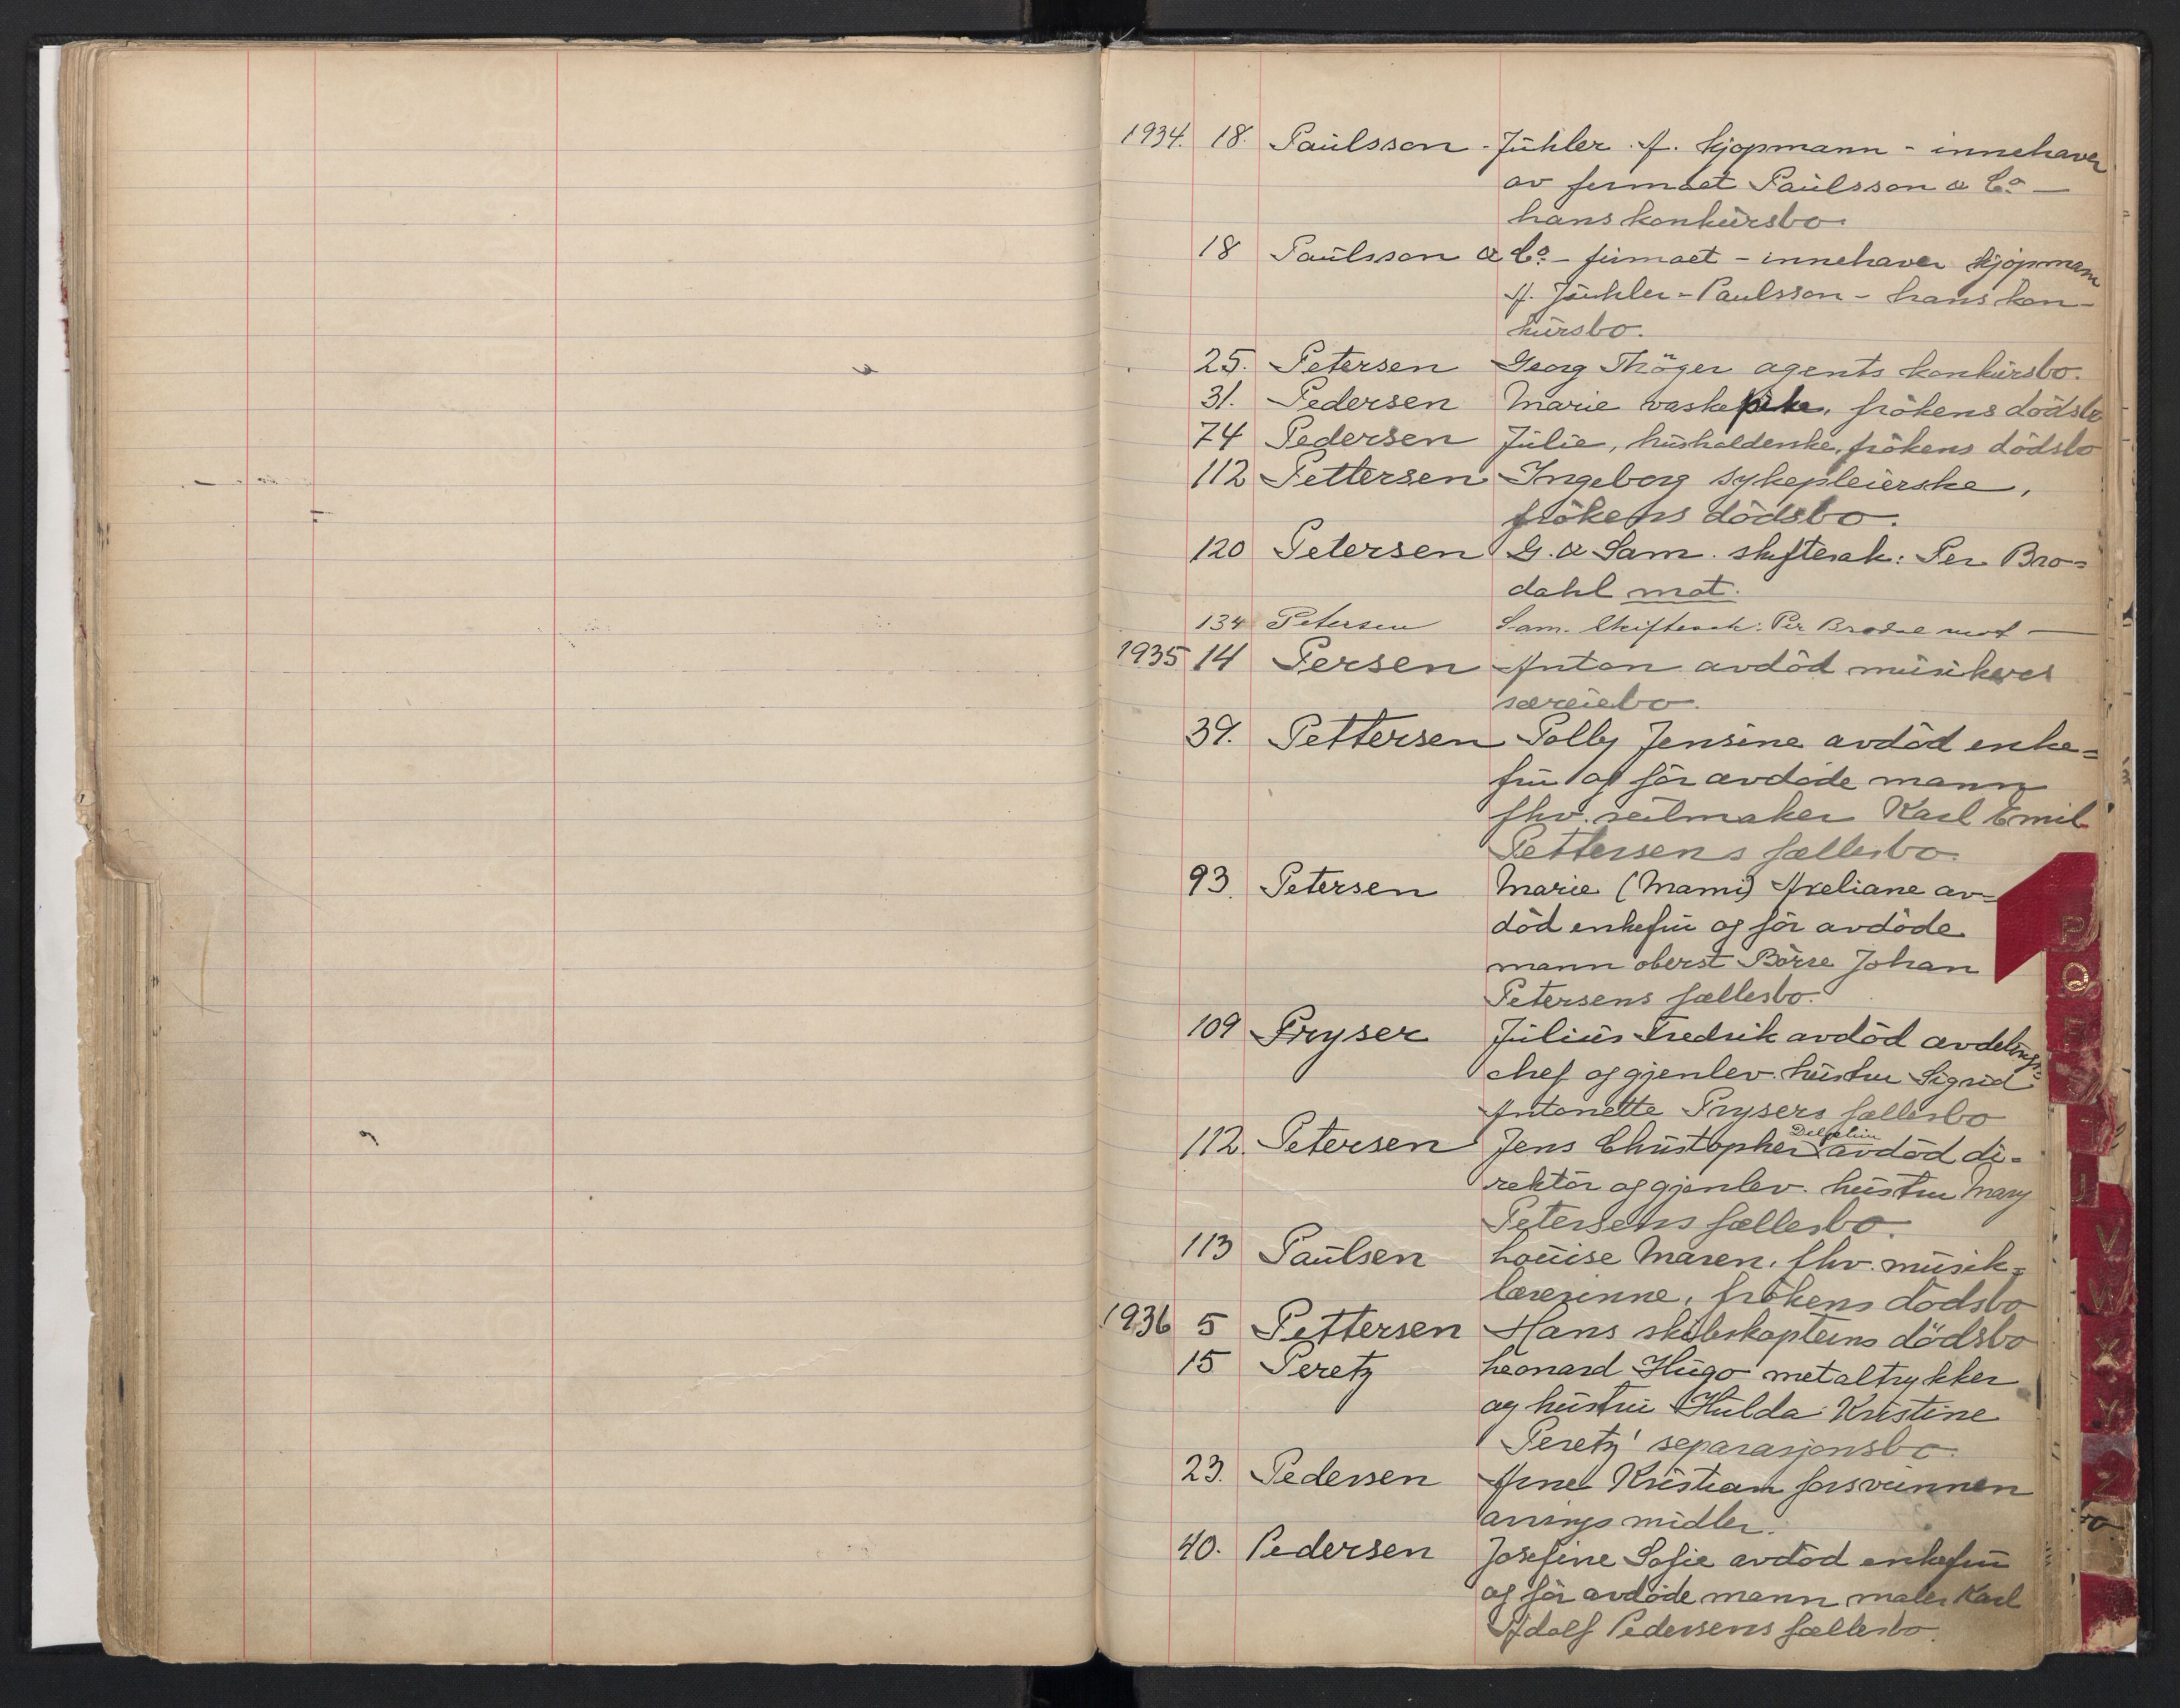 1934. 18. Paulsson - Jühler. A. kjøpmann - innehaver
av firmaet Paulsson & Co. —
hans konkursbo.
18 Paulsson & Co. - firmaet - innehaver kjøpmann
A. Jühler - Paulsson - hans kon-
kursbo.
25. Petersen Georg Thöger agents konkursbo.
31. Pedersen Marie vaskepike, frökens dödsbo
74 Pedersen Julie, husholderske, frökens dödsbo
112 Pettersen Ingeborg sykepleierske,
frökens dödsbo.
120 Petersen G. & Sam. skiftesak: Per Bro=
dahl mot.
134 Petersen Sam. Skiftesak: Per mot —
1935 14 Persen Anton avdöd musikeres
særeiebo.
39. Pettersen Polly Jensine avdöd enke=
fru og för avdöde mann
fhv. seilmaker Karl Emil
Pettersens fællesbo.
93. Petersen Marie (Mami) Axeliane av=
död enkefru og för avdöde
mann oberst Börre Johan
Petersens fællesbo.
109 Pryser Julius Fredrik avdöd avdelings=
chef og gjenlev. hustru Sigrid
Antonette Prysers fællesbo
112. Petersen Jens Christopher Delphin avdöd di-
rektör og gjenlev. hustru Mary
Petersens fællesbo.
113 Paulsen Louise Maren, fhv. musik=
lærerinne, frökens dödsbo
1936 5 Pettersen Hans skibskapteins dödsbo
15 Peretz Leonard Hugo metaltrykker
og hustru Hulda Kristine
Peretz' separasjonsbo.
23. Pedersen Arne Kristian forsvunnen
arvings midler.
40. Pedersen Josefine Sofie avdöd enkefru
og för avdöde mann maler Karl
Adolf Pedersens fællesbo.
P
Q
R
S
T
U
V
W
X
Y
Z